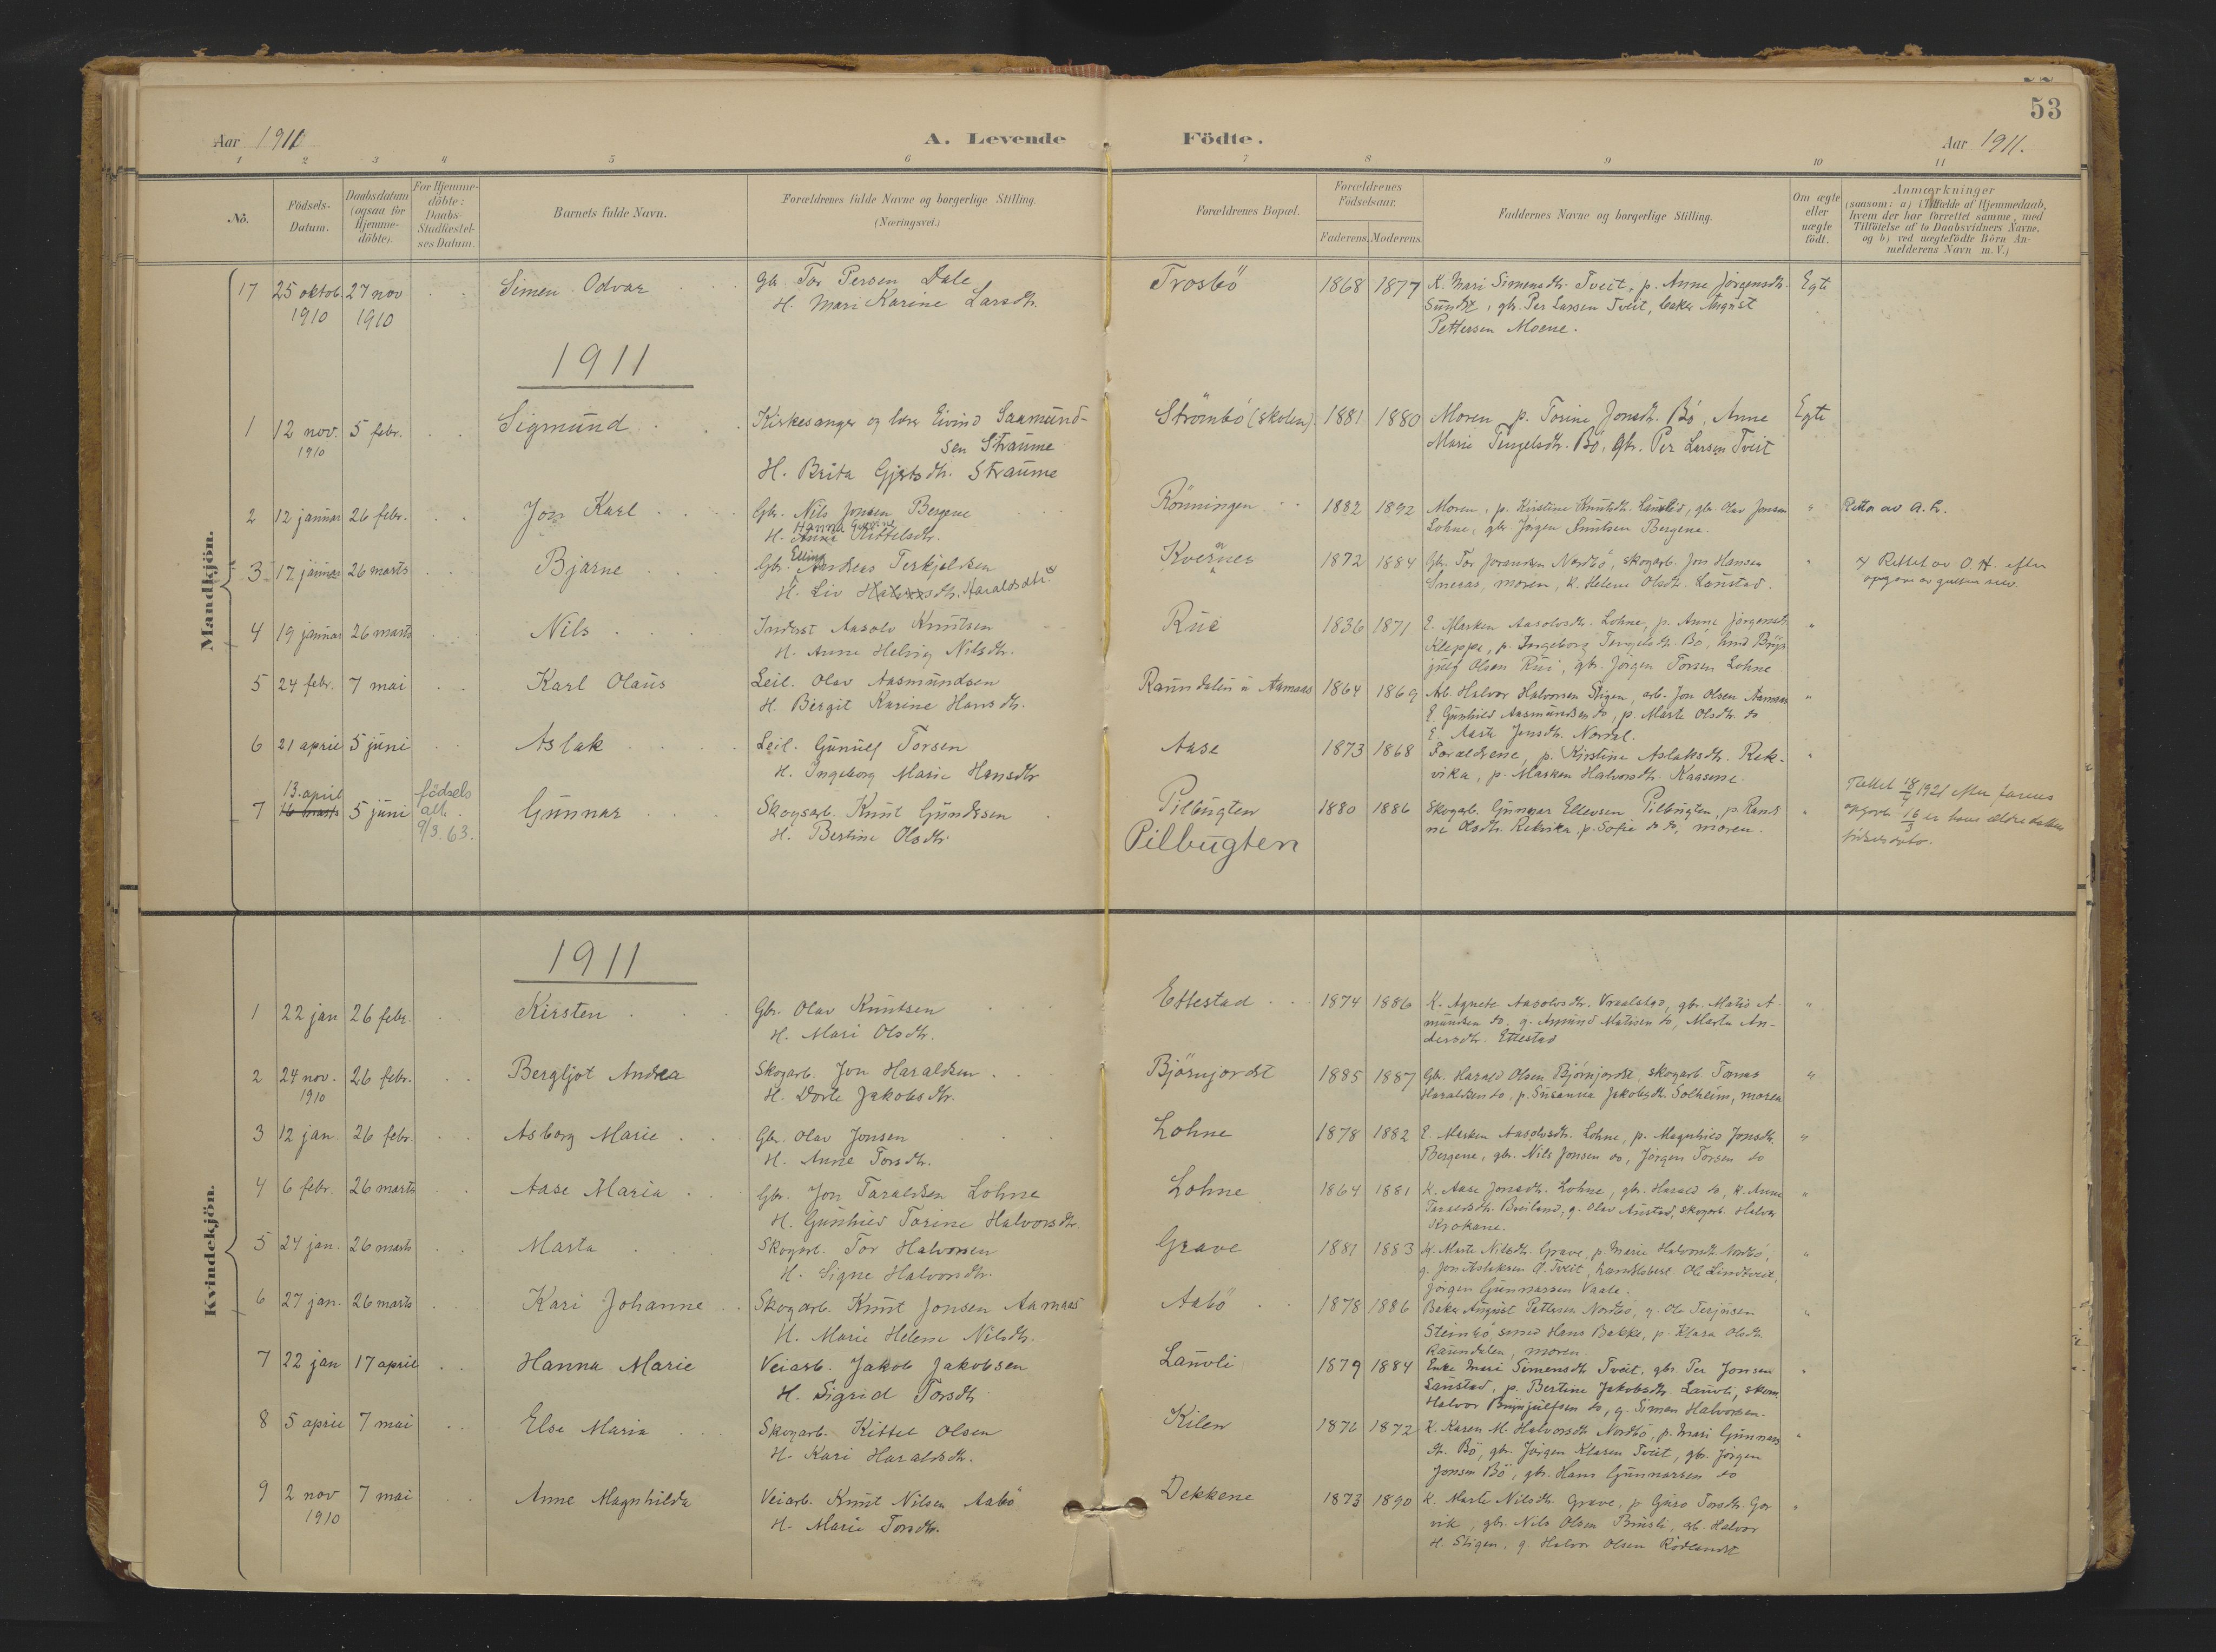 53
Aar 1911
A. Levende Födte.
Aar 1911.
1 2 3 4 5 6 7 8 9 10 11
No.
Födsels-Datum.
Daabsdatum (ogsaa for Hjemme-döbte).
For Hjemme-döbte: Daabs-Stadfæstel-ses Datum.
Barnets fulde Navn.
Forældrenes fulde Navne og borgerlige Stilling. (Næringsvei.)
Forældrenes Bopæl.
Forældrenes Födselsaar.
Faderens. Moderens.
Faddernes Navne og borgerlige Stilling.
Om ægte eller uægte födt.
Anmærkninger
(saasom: a) i Tilfælde af Hjemmedaab,
hvem der har forrettet samme, med
Tilföielse af to Daabsvidners Navne.
og b) ved uægtefödte Börn An-
melderens Navn m. V.)
Mandkjön.
17 25 oktob. 27 nov Simen Odvar Gbr. Tor Persen Dale Trosbö 1868 1877 K. Mari Simensdtr. Tveit, p. Anne Jörgensdtr. Egte
1910 1910 H. Mari Karine Larsdtr. Sundst, gbr. Per Larsen Tveit, baker August
Pettersen Moene.
1911
1 12 nov. 5 febr. Sigmund Kirkesanger og lærer Eivind Saamund- Strömbö (skolen) 1881 1880 Moren p. Torine Jonsdtr. Bö, Anne Egte
1910 sen Straume Marie Tengelsdtr. Bö, gbr. Per Larsen Tveit
H. Brita Gjertsdtr. Straume
2 12 januar 26 febr. Jon Karl Gbr. Nils Jonsen Bergene Rönningen 1882 1892 Moren, p. Kirstine Knutsdtr. Lauvlid, gbr. Olav Jonsen " Rettet av O. H.
H. Hanna Kittelsdtr. Lohne, gbr. Jörgen Knutsen Bergene.
3 17 januar 26 marts Bjarne Gbr. Elling Terkjelsen Kvernes 1872 1884 Gbr. Tor Joransen Nordbö, skogarb. Jon Hansen " x Rettet av O. H. efter
H. Liv Haraldsdtr. x Sneaas, moren, K. Helene Olsdtr. Laustad.
4 19 januar 26 marts Nils Inderst Aasolv Knutsen Rui 1836 1871 E. Marken Aasolvsdtr. Lohne, p. Anne Jörgensdtr. "
H. Anne Helvig Nilsdtr. Kleppe, p. Ingeborg Tengelsdtr. Bö, Brynjulf Olsen Rui, gbr. Jörgen Torsen Lohne.
5 24 febr. 7 mai Karl Olaus Leil. Olav Aasmundsen Raundalen u. Aamaas 1864 1869 Arb. Halvor Halvorsen Stigen, arb. Jon Olsen Aamaas "
H. Bergit Karine Hansdtr. E. Gunhild Aasmundsen do, p. Marte Olsdtr. do
E. Aaste Jonsdtr.
6 21 april 5 juni Aslak Leil. Gunulf Torsen Aase 1873 1868 Forældrene, p. Kirstine Aslaksdtr. Rek- "
H. Ingeborg Marie Hansdtr vika, p. Marken Halvorsdtr. Kaasene.
13. april födsels
7 16 marts 5 juni att. Gunnar Skogsarb. Knut Gundersen Pilbugten 1880 1886 Skogarb. Gunnar Ellevsen Pilbugten, p. Rand "
9/3.63. H. Bertine Olsdtr. Pilbugten ne Olsdtr. Rekvika, p. Sofie do do, moren.
Kvindekjön.
1911
1 22 jan 26 febr. Kirsten Gbr. Olav Knutsen Ettestad 1874 1886 K. Agnete Aasolvsdtr. Vraalstad, gbr. Matis A- "
H. Mari Olsdtr. mundsen do, g. Amund Matisen do, Marta An-
dersdtr. Ettestad
2 24 nov. 26 febr. Bergljot Andrea Skogarb. Jon Haraldsen Björnjordst 1885 1887 Gbr. Harald Olsen Björnjordst, skogarb. Tomas "
1910 H. Dorte Jakobsdtr. Haraldsen do, p. Susanna Jakobsdtr. Solheim, moren
3 12 jan. 26 febr. Asborg Marie Gbr. Olav Jonsen Lohne 1878 1882 E. Marken Aasolvsdtr. Lohne, p. Magnhild Jonsdtr. "
H. Anne Torsdtr. Bergene, gbr. Nils Jonsen do, Jörgen Torsen do
4 6 febr. 26 marts Aase Maria Gbr. Jon Taraldsen Lohne Lohne 1864 1881 K. Aase Jonsdtr. Lohne, gbr. Harald do, K. Anne "
H. Gunhild Torine Halvorsdtr. Taraldsdtr. Breiland, g. Olav Austad, skogarb. Halvor
Krokane.
5 24 jan. 26 marts Marta Skogarb. Tor Halvorsen Grave 1881 1883 K. Marte Nilsdtr. Grave, p. Marie Halvorsdtr. Nordbö, "
H. Signe Halvorsdtr. g. Jon Aslaksen Ö. Tveit, handelsbest. Ole Lindtveit,
Jörgen Gunnarsen Vaale.
6 27 jan. 26 marts Kari Johanne Skogarb. Knut Jonsen Aamaas Aabö 1878 1886 Baker August Pettersen Nordbö, g. Ole Terjusen "
H. Marie Helene Nilsdtr. Steinbö, smed Hans Bakke, p. Klara Olsdtr.
Raundalen, moren.
7 22 jan 17 april Hanna Marie Veiarb. Jakob Jakobsen Lauvli 1879 1884 Enke Mari Simensdtr Tveit, gbr. Per Jonsen "
H. Sigrid Torsdtr. Laustad, p. Bertine Jakobsdtr. Lauvli, skom.
Halvor Brynjulfsen do, g. Simen Halvorsen.
8 5 april 7 mai Else Maria Skogarb. Kittel Olsen Kilen 1876 1872 K. Karen M. Halvorsdtr Nordbö, p. Mari Gunnars "
H. Kari Haraldsdtr. dtr. Bö, gbr. Jörgen Klasen Tveit, gbr. Jörgen
Jonsen Bö, gbr. Hans Gunnarsen do
9 2 nov 7 mai Anne Magnhilda Veiarb. Knut Nilsen Aabö Dekkene 1873 1890 K. Marte Nilsdtr. Grave, p. Guro Torsdtr. Gor "
1910 H. Marie Torsdtr. vik, gbr. Nils Olsen Brusli, arb. Halvor
H. Stigen, g. Halvor Olsen Rödlandst